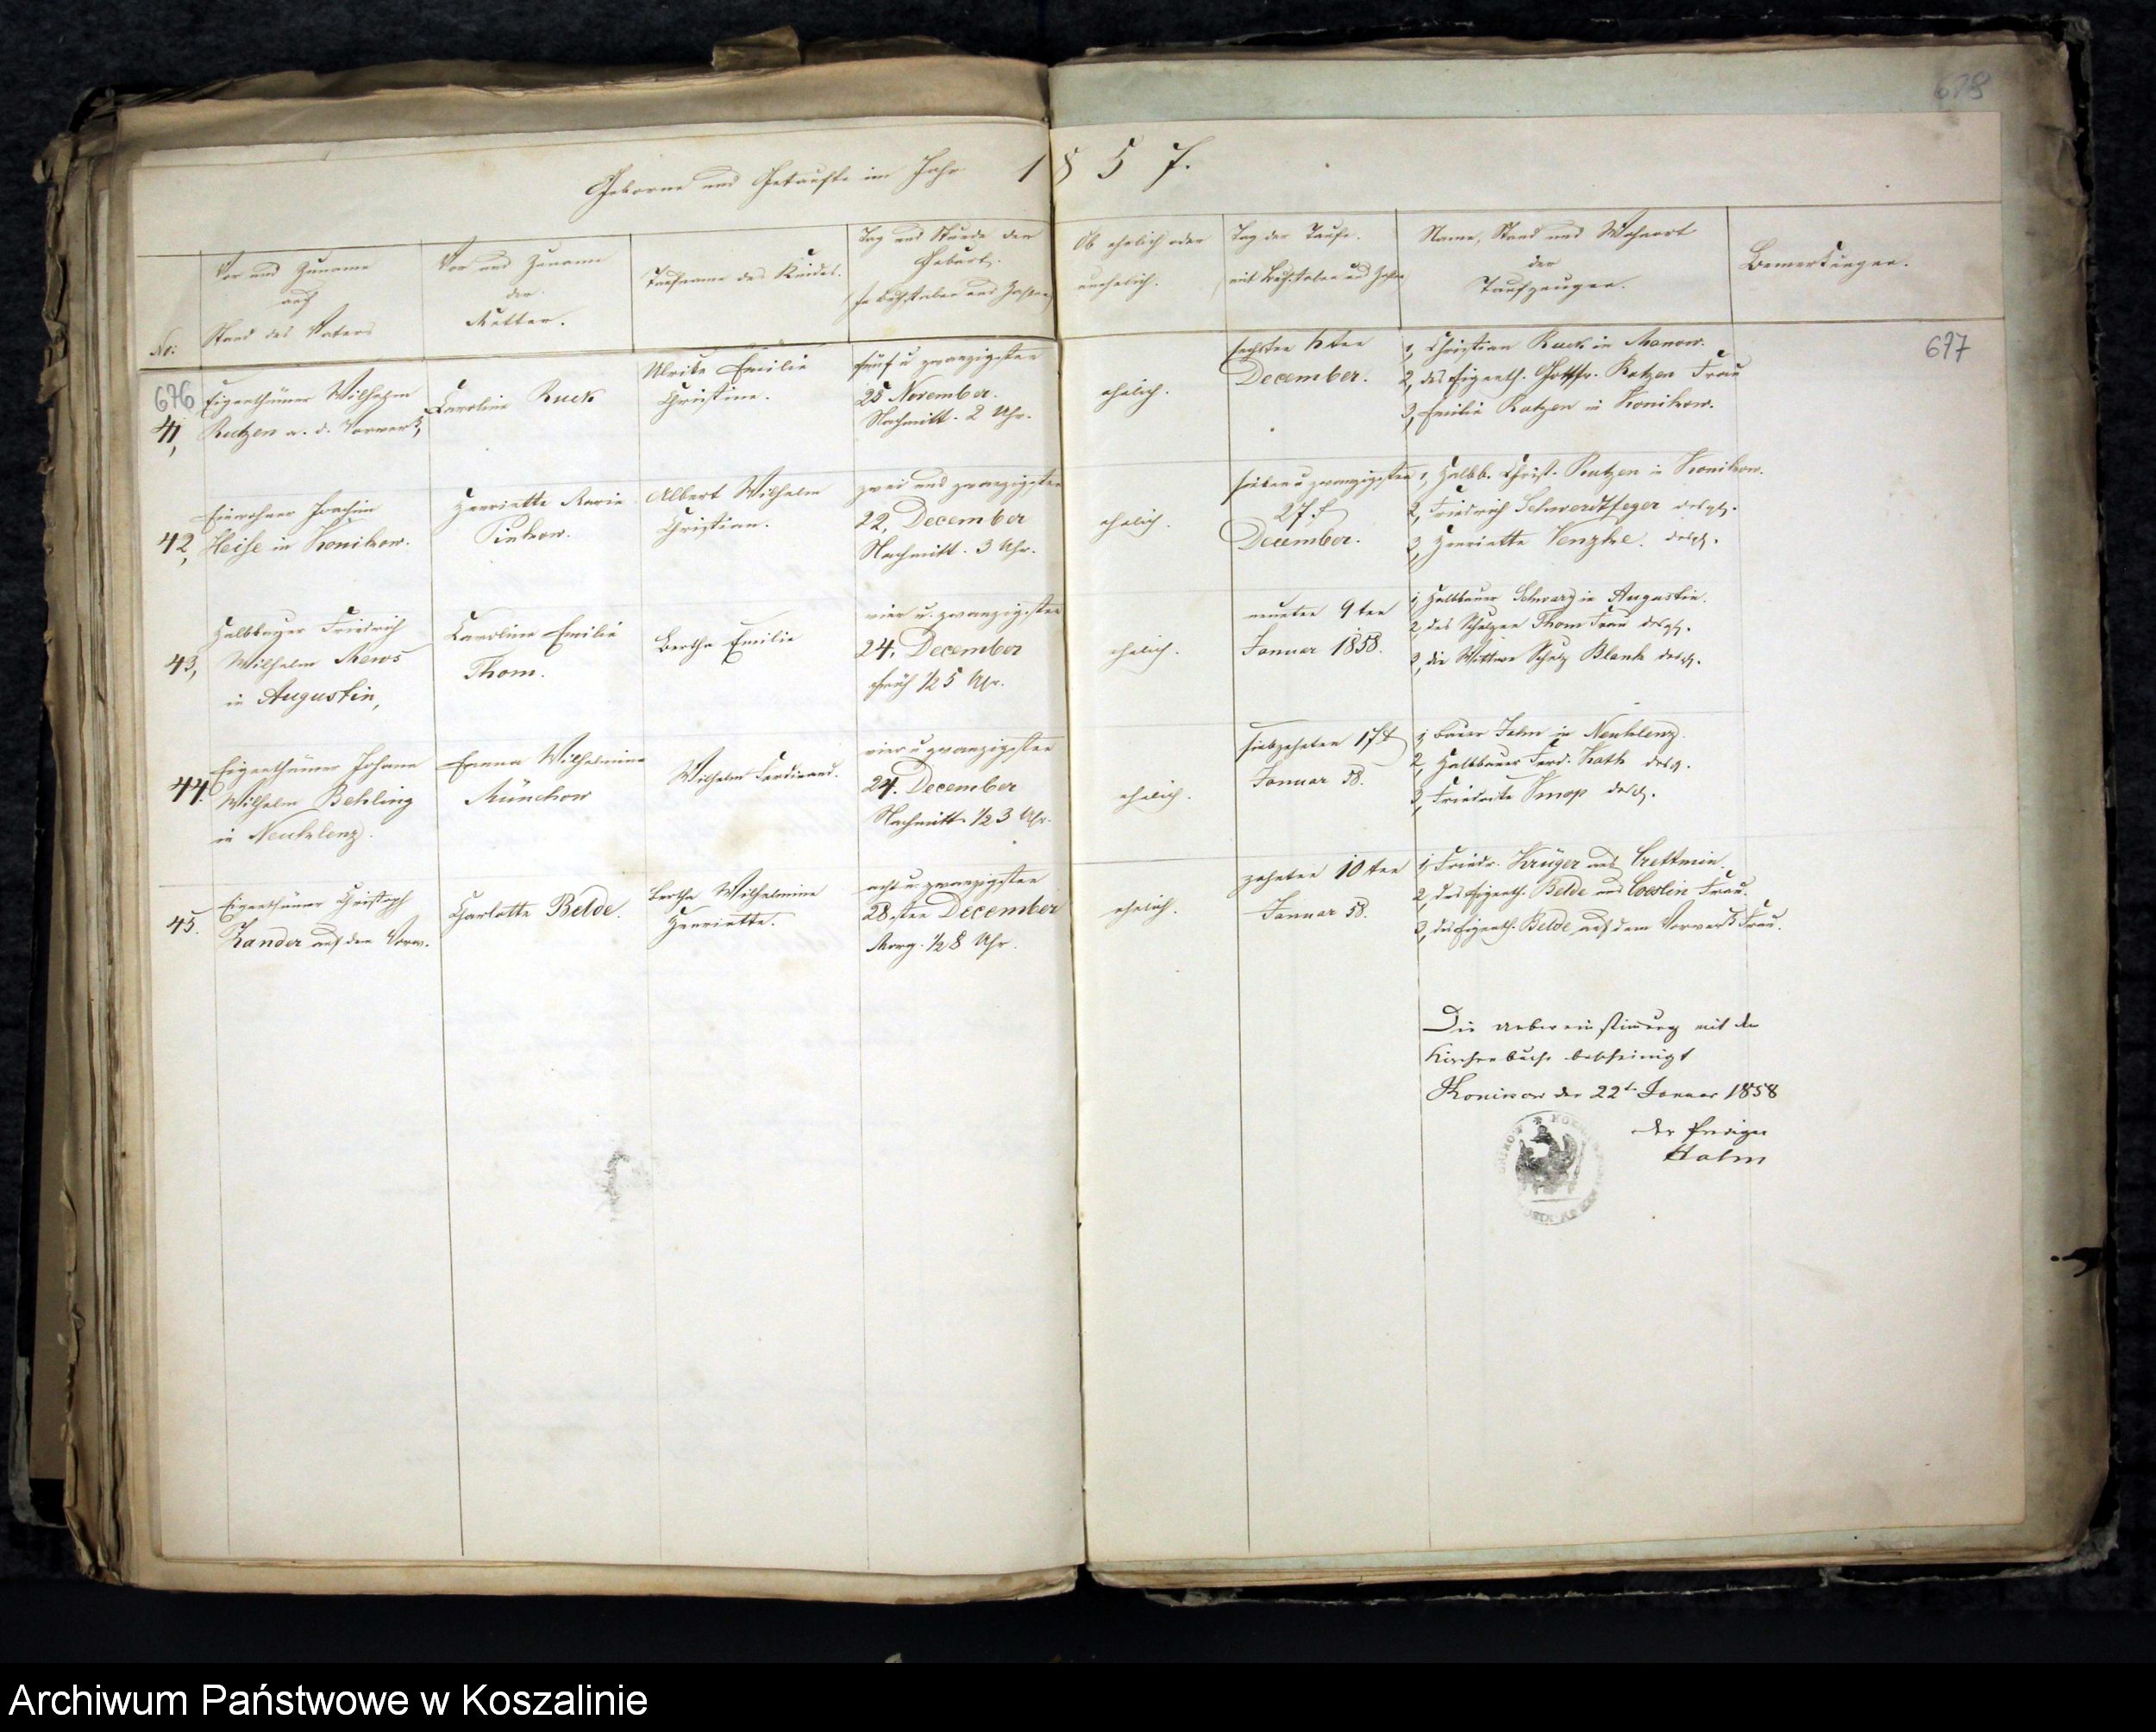 678
Geborne und Getaufte im Jahr 1857.
No:
Vor und Zuname
auch
Stand des Vaters
Vor und Zuname
der
Mutter.
Taufname des Kindes.
Tag und Stunde der
Geburt.
in Buchstaben und Zahlen
Ob ehelich oder
unehelich.
Tag der Taufe.
mit Buchstaben und Zahlen
Name, Stand und Wohnort
der
Taufzeugen.
Bemerkungen.
676
677
41,
Eigenthümer Wilhelm
Ratzen a. d. Vorwerk,
Caroline Ruck
Ulrike Emilie
Christine.
fünf u zwanzigsten
25 November.
Nachmitt. 2 Uhr.
ehelich.
sechsten 6ten
December.
1, Christian Ruck in Manow.
2, des Eigenth. Gottfr. Ratzen Frau
3, Emilie Ratzen in Konikow.
42,
Einwohner Joachim
Heise in Konikow.
Henriette Marie
Pinkow.
Albert Wilhelm
Christian.
zwei und zwanzigsten
22, December
Nachmitt. 3 Uhr.
ehelich.
sieben u zwanzigsten
27st
December.
1, Halbb. Christ. Ratzen in Konikow.
2, Friedrich Schwerdtfeger desgl.
3, Henriette Venzke. desgl.
43,
Halbbauer Friedrich
Wilhelm Mews
in Augustin,
Caroline Emilie
Thom.
Bertha Emilie
vier u. zwanzigsten
24, December
früh 1/2 5 Uhr.
ehelich.
neunten 9ten
Januar 1858.
1, Halbbauer Schwarz in Augustin.
2, des Schulzen Thom Frau desgl.
3, die Wittwe Schulz Blank desgl.
44.
Eigenthümer Johann
Wilhelm Behling
in Neuklenz.
Emma Wilhelmine
Münchow
Wilhelm Ferdinand.
vier u zwanzigsten
24. December
Nachmitt. 1/2 3 Uhr.
ehelich.
siebzehnten 17t
Januar 58.
1, Bauer Jahn in Neuklenz.
2, Halbbauer Ferd. Kath desgl.
3, Friedrike Knop desgl.
45.
Eigenthümer Christoph
Zander auf dem Vorw.
Charlotte Belde.
Bertha Wilhelmine
Henriette.
acht u. zwanzigsten
28sten December
Morg. 1/2 8 Uhr.
ehelich.
zehnten 10ten
Januar 58.
1, Friedr. Krüger aus Crettmin.
2, des Eigenth. Belde aus Coeslin Frau.
3, des Eigenth. Belde auf dem Vorwerk Frau.
Die Uebereinstimmung mit dem
Kirchenbuche bescheinigt
Konikow den 22t Januar 1858
Der Prediger
Hahn
Archiwum Państwowe w Koszalinie